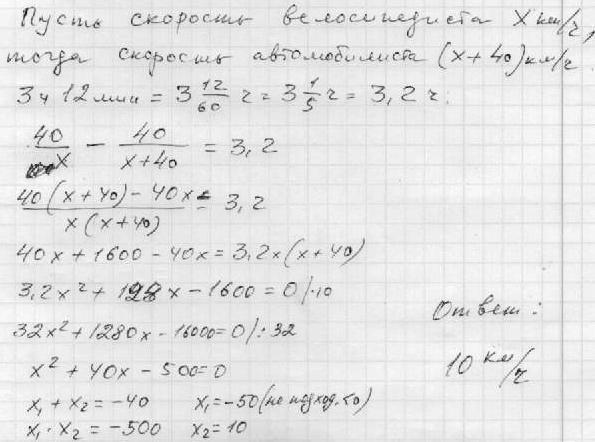 Пусть скорость велосипедиста x км/ч,
тогда скорость автомобилиста (x+40) км/ч
3ч 12мин = 3 12/60 ч = 3 1/5 ч = 3,2 ч.
40/x − 40/(x+40) = 3,2
(40(x+40) − 40x)/(x(x+40)) = 3,2
40x + 1600 − 40x = 3,2x(x+40)
3,2x² + 128x − 1600 = 0 |·10
32x² + 1280x − 16000 = 0 |:32
x² + 40x − 500 = 0
x₁ + x₂ = −40 x₁ = −50 (не подход. <0)
x₁ · x₂ = −500 x₂ = 10
Ответ:
10 км/ч